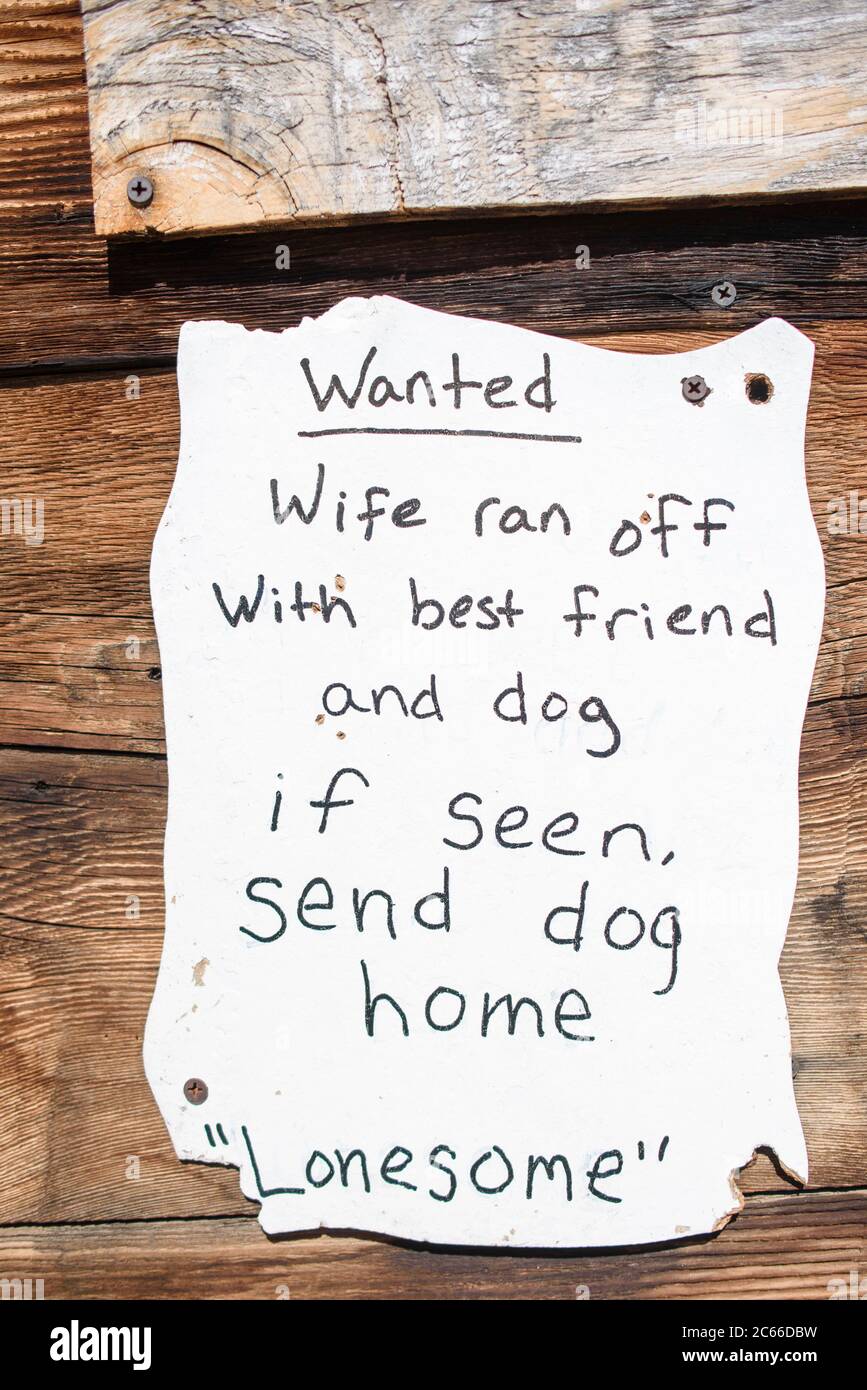 Wanted
Wife ran off
With best friend
and dog
if seen,
send dog
home
"Lonesome"
alamy
Image ID: 2C66DBW
www.alamy.com